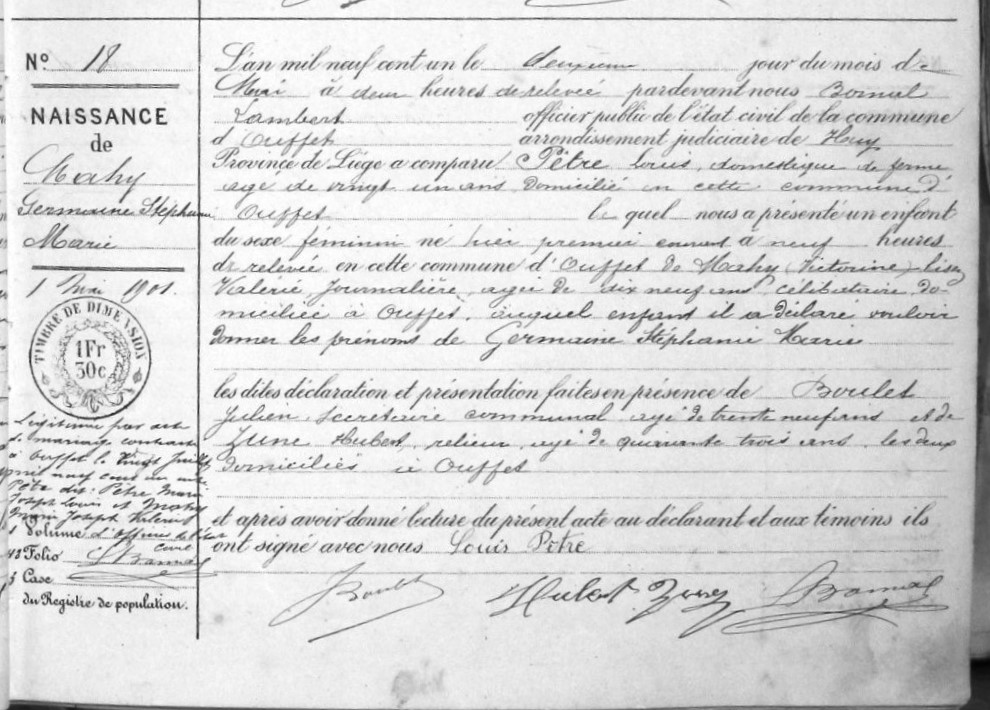 N° 18
NAISSANCE
de
Mahy
Germaine Stéphanie
Marie
1 Mai 1901.
TIMBRE DE DIMENSION
1Fr
30c
Légitimée par acte
de mariage contracté
à Ouffet le vingt Juillet
mil neuf cent un entre
Pêtre dit: Pêtre Marie
Joseph Louis et Mahy
Marie Joseph Valérie
L'officier de l'état
Volume
civil
Folio LBomal
Case
du Registre de population.
L'an mil neuf cent un le deuxième jour du mois de
Mai à deux heures de relevée pardevant nous Bomal
Lambert officier public de l'état civil de la commune
d'Ouffet arrondissement judiciaire de Huy
Province de Liége a comparu Pêtre Louis, domestique de ferme
agé de vingt un ans domicilié en cette commune d'
Ouffet le quel nous a présenté un enfant
du sexe féminin né hier premier courant à neuf heures
de relevée en cette commune d'Ouffet de Mahy (Victorine)
Valérie Journalière, agée de dix neuf ans, célibataire do-
miciliée à Ouffet, auquel enfant il a déclaré vouloir
donner les prénoms de Germaine Stéphanie Marie
les dites déclaration et présentation faites en présence de Boulet
Julien secrétaire communal agé de trente neuf ans et de
Zune Hubert, relieur, agé de quarante trois ans, les deux
domiciliés à Ouffet
et après avoir donné lecture du présent acte au déclarant et aux témoins ils
ont signé avec nous Louis Pêtre
JBoulet Hubert Zune LBomal